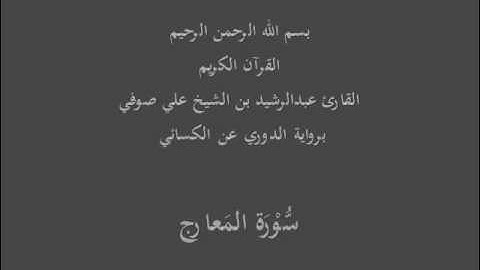 بسم الله الرحمن الرحيم
القرآن الكريم
القارئ عبدالرشيد بن الشيخ علي صوفي
برواية الدوري عن الكسائي
سُّوْرَة المَعارج